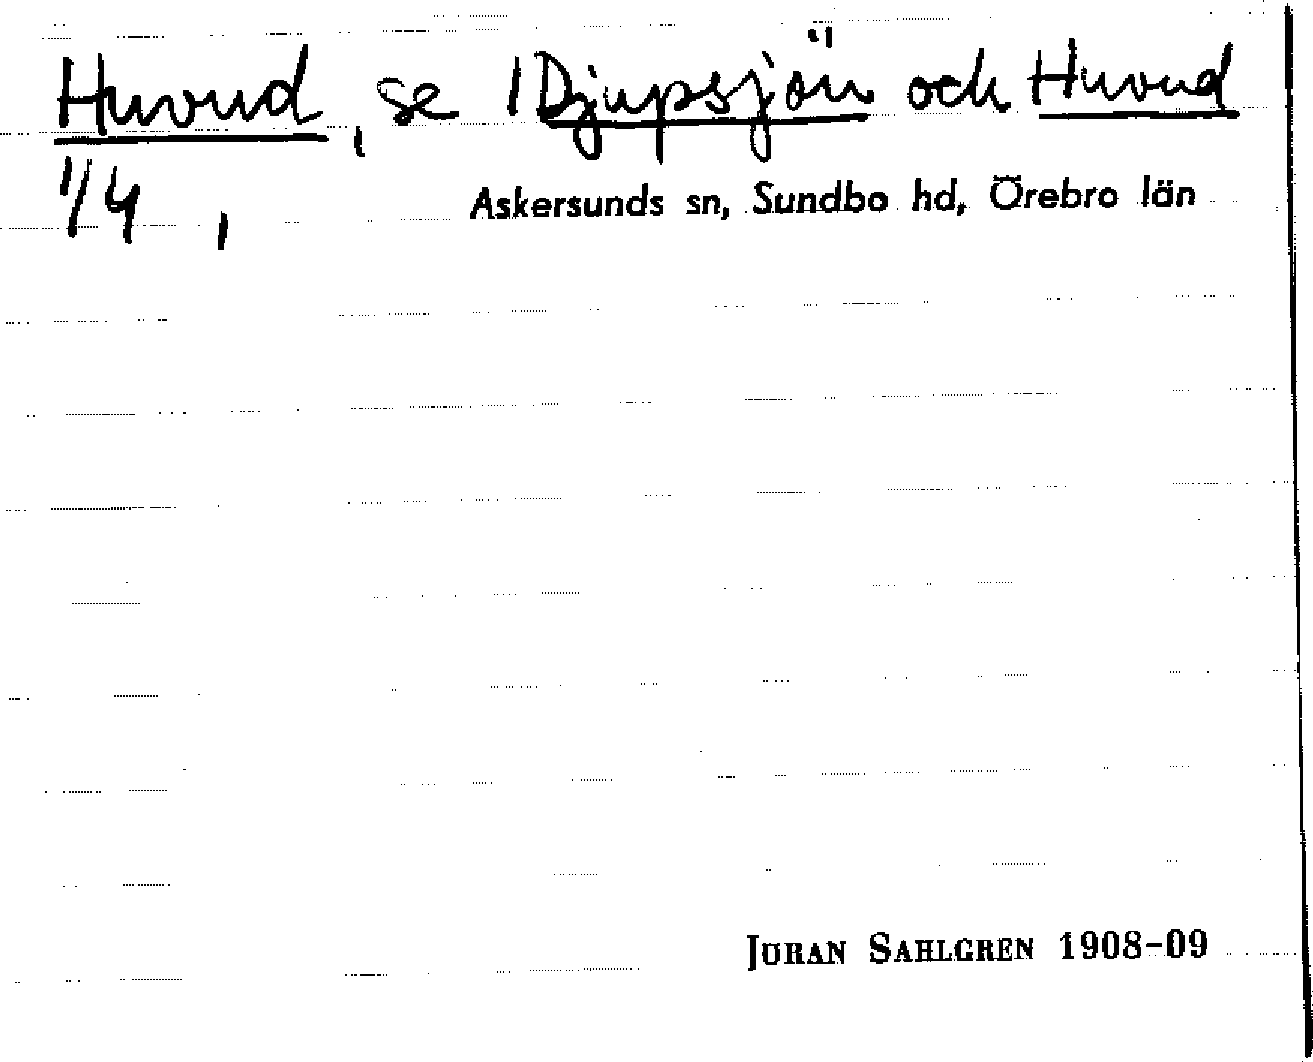 Huvud, se 1 Djupsjön och Huvud
1/4 ,
Askersunds sn, Sundbo hd, Örebro län
JÖRAN SAHLGREN 1908-09